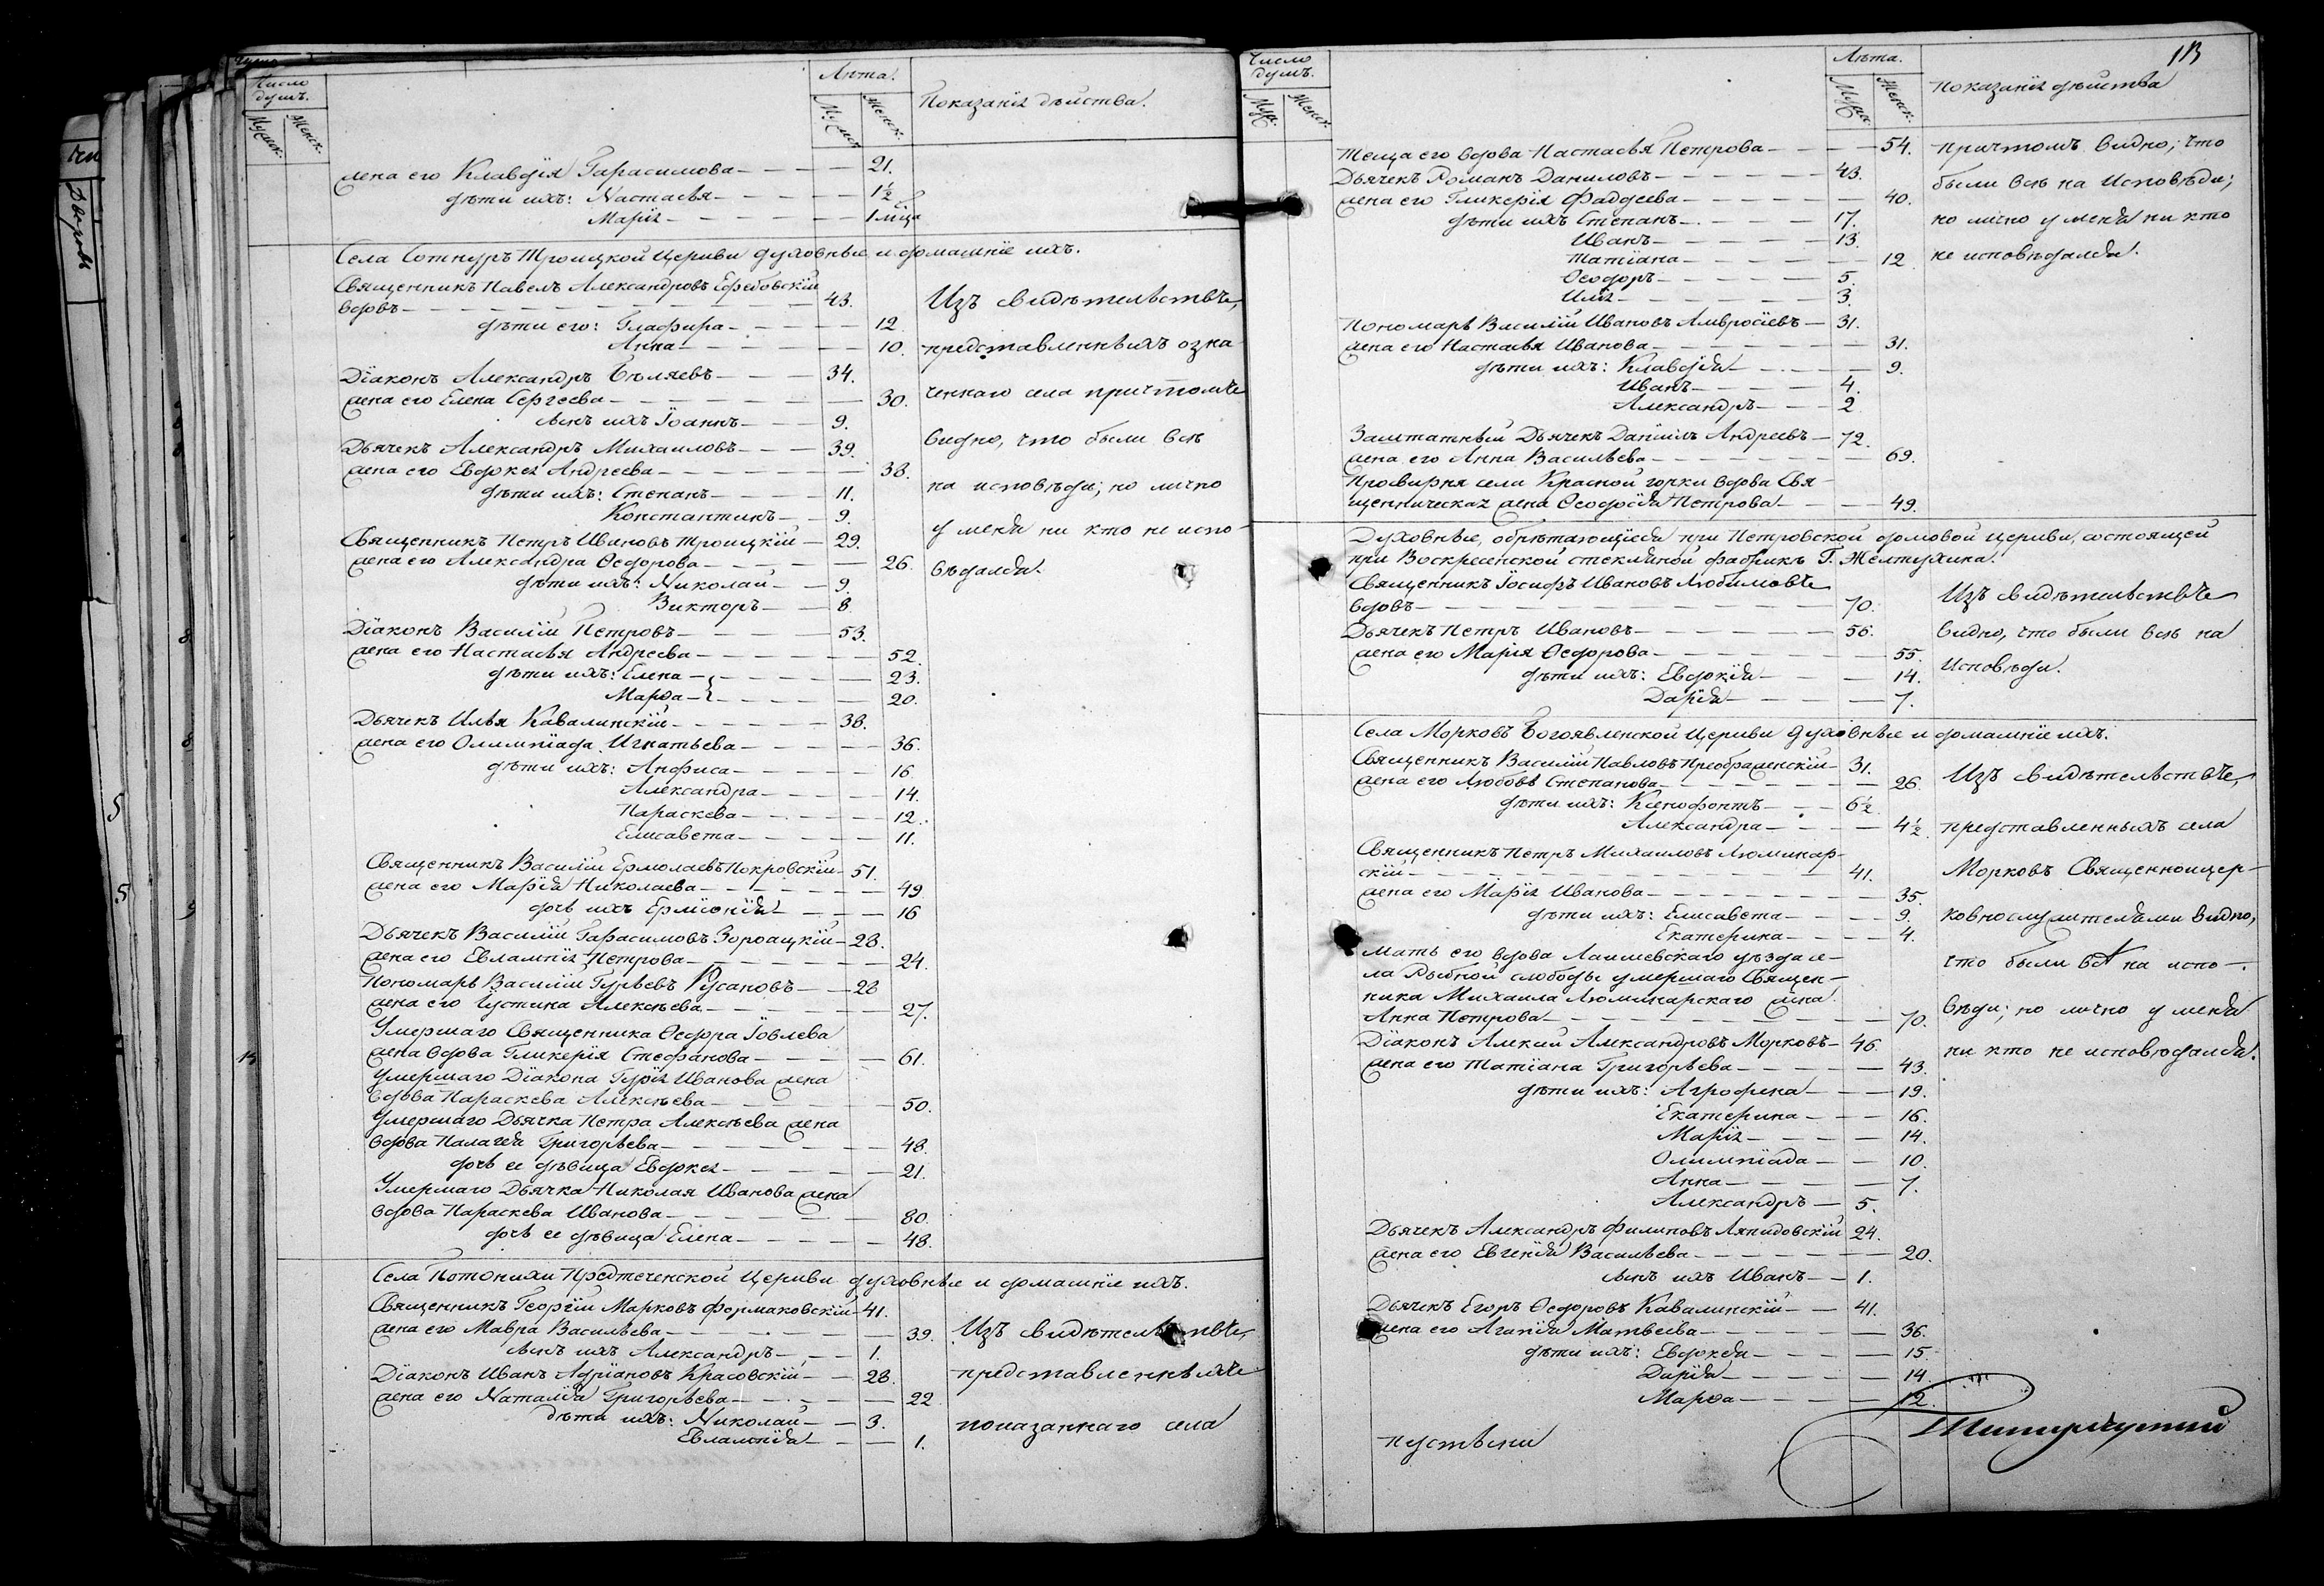 Число душъ.
Мужск. Женск.
Лѣта.
Мужск. Женск.
Показанія дѣйства.
жена его Клавдія Гарасимова — 21.
дѣти ихъ: Настасья — 1½
Марія — 1 мѣца
Села Сотнуръ Троицкой Церкви духовные и домашніе ихъ.
Священникъ Павелъ Александровъ
вдовъ — 43.
дѣти его: Глафира — 12.
Анна — 10.
Діаконъ Александръ Бѣляевъ — 34.
жена его Елена Сергеева — 30.
сынъ ихъ Іоаннъ — 9.
Дьячекъ Александръ Михаиловъ — 39.
жена его Евдокея Андреева — 38.
дѣти ихъ: Степанъ — 11.
Константинъ — 9.
Священникъ Петръ Ивановъ Троицкій — 29.
жена его Александра Ѳедорова — 26.
дѣти ихъ: Николай — 9.
Викторъ — 8.
Діаконъ Василій Петровъ — 53.
жена его Настасья Андреева — 52.
дѣти ихъ: Елена — 23.
Марѳа — 20.
Дьячекъ Илья Кавалинскій — 38.
жена его Олимпіада Игнатьева — 36.
дѣти ихъ: Анфиса — 16.
Александра — 14.
Параскева — 12.
Елисавета — 11.
Священникъ Василій Ермолаевъ Покровскій — 51.
жена его Марія Николаева — 49
дочь ихъ Ерміонія — 16
Дьячекъ Василій Гарасимовъ — 28.
жена его Евлампія Петрова — 24.
Пономарь Василій Гурьевъ Русановъ — 28
жена его Іустина Алексѣева — 27.
Умершаго Священника Ѳедора Іовлева
жена вдова Гликерія Стефанова — 61.
Умершаго Діакона Гурія Иванова жена
вдова Параскева Алексѣева — 50.
Умершаго Дьячка Петра Алексѣева жена
вдова Палагея Григорьева — 48.
дочь ее дѣвица Евдокея — 21.
Умершаго Дьячка Николая Иванова жена
вдова Параскева Иванова — 80.
дочь ее дѣвица Елена — 48.
Изъ свидѣтельствъ,
представленныхъ озна
ченнаго села причтомъ
видно, что были всѣ
на исповѣди; но лично
у меня ни кто не испо-
вѣдался.
Села Потонихи Предтеченской Церкви духовные и домашніе ихъ.
Священникъ Георгій Марковъ Фармаковскій — 41.
жена его Мавра Васильева — 39.
сынъ ихъ Александръ — 1.
Діаконъ Иванъ Адріановъ Красовскій — 28.
жена его Наталія Григорьева — 22
дѣти ихъ: Николай — 3.
Евлампія — 1.
Изъ свидѣтельствъ,
представленныхъ
показаннаго села
Число душъ.
Муж. Женск.
Лѣта.
Мужск. Женск.
Показанія дѣйства
113
Теща его вдова Настасья Петрова — 54.
Дьячекъ Романъ Даниловъ — 43.
жена его Гликерія Фаддеева — 40.
дѣти ихъ Степанъ — 17.
Иванъ — 13.
Татіана — 12
Ѳеодоръ — 5.
Илія — 3.
Пономарь Василій Ивановъ Амвросіевъ — 31.
жена его Настасья Иванова — 31.
дѣти ихъ: Клавдія — 9.
Иванъ — 4.
Александръ — 2
Заштатный Дьячекъ Даніилъ Андреевъ — 72.
жена его Анна Васильева — 69.
Просвирня села Красной горки вдова Свя-
щенническая жена Ѳеодосія Петрова — 49.
причтомъ видно; что
были всѣ на Исповѣди;
но лично у меня ни кто
не исповѣдался.
Духовные, обрѣтающіеся при Петровской домовой церкви, состоящей
при Воскресенской стеклянной фабрикѣ Г. Желтухина.
Священникъ Іосифъ Ивановъ Любимовъ
вдовъ — 70.
Дьячекъ Петръ Ивановъ — 56.
жена его Марія Ѳедорова — 55.
дѣти ихъ: Евдокія — 14.
Дарія — 7.
Изъ свидѣтельствъ
видно, что были всѣ на
Исповѣди.
Села Морковъ Богоявленской Церкви духовные и домашніе ихъ.
Священникъ Василій Павловъ Преображенскій — 31.
жена его Любовь Степанова — 26.
дѣти ихъ: Ксенофонтъ — 6½
Александра — 4½
Священникъ Петръ Михаиловъ Люминар-
скій — 41.
жена его Марія Иванова — 35.
дѣти ихъ: Елисавета — 9.
Екатерина — 4.
Мать его вдова Лаишевскаго уѣзда се-
ла Рыбной слободы умершаго Священ-
ника Михаила Люминарскаго жена
Анна Петрова — 70.
Діаконъ Алексій Александровъ Морковъ — 46.
жена его Татіана Григорьева — 43.
дѣти ихъ: Агрофена — 19.
Екатерина — 16.
Марія — 14.
Олимпіада — 10.
Анна — 7.
Александръ — 5.
Дьячекъ Александръ Филиповъ Ляпидовскій 24.
жена его Евгенія Васильева — 20.
сынъ ихъ Иванъ — 1.
Дьячекъ Егоръ Ѳедоровъ Кавалинскій — 41.
жена его Агапія Матвеева — 36.
дѣти ихъ: Евдокея — 15.
Дарія — 14.
Марѳа — 12.
Изъ свидѣтельствъ,
представленныхъ села
Морковъ Священноцер-
ковнослужителями видно,
что были всѣ на испо-
вѣди; но лично у меня
ни кто не исповѣдался.